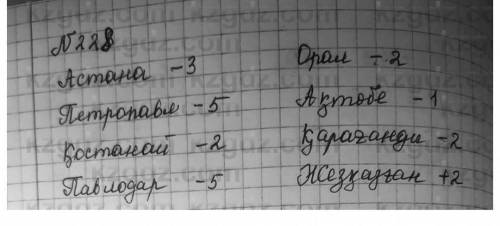 №228
Астана -3
Петропавл -5
Қостанай -2
Павлодар -5
Орал -2
Ақтөбе -1
Қарағанды -2
Жезқазған +2